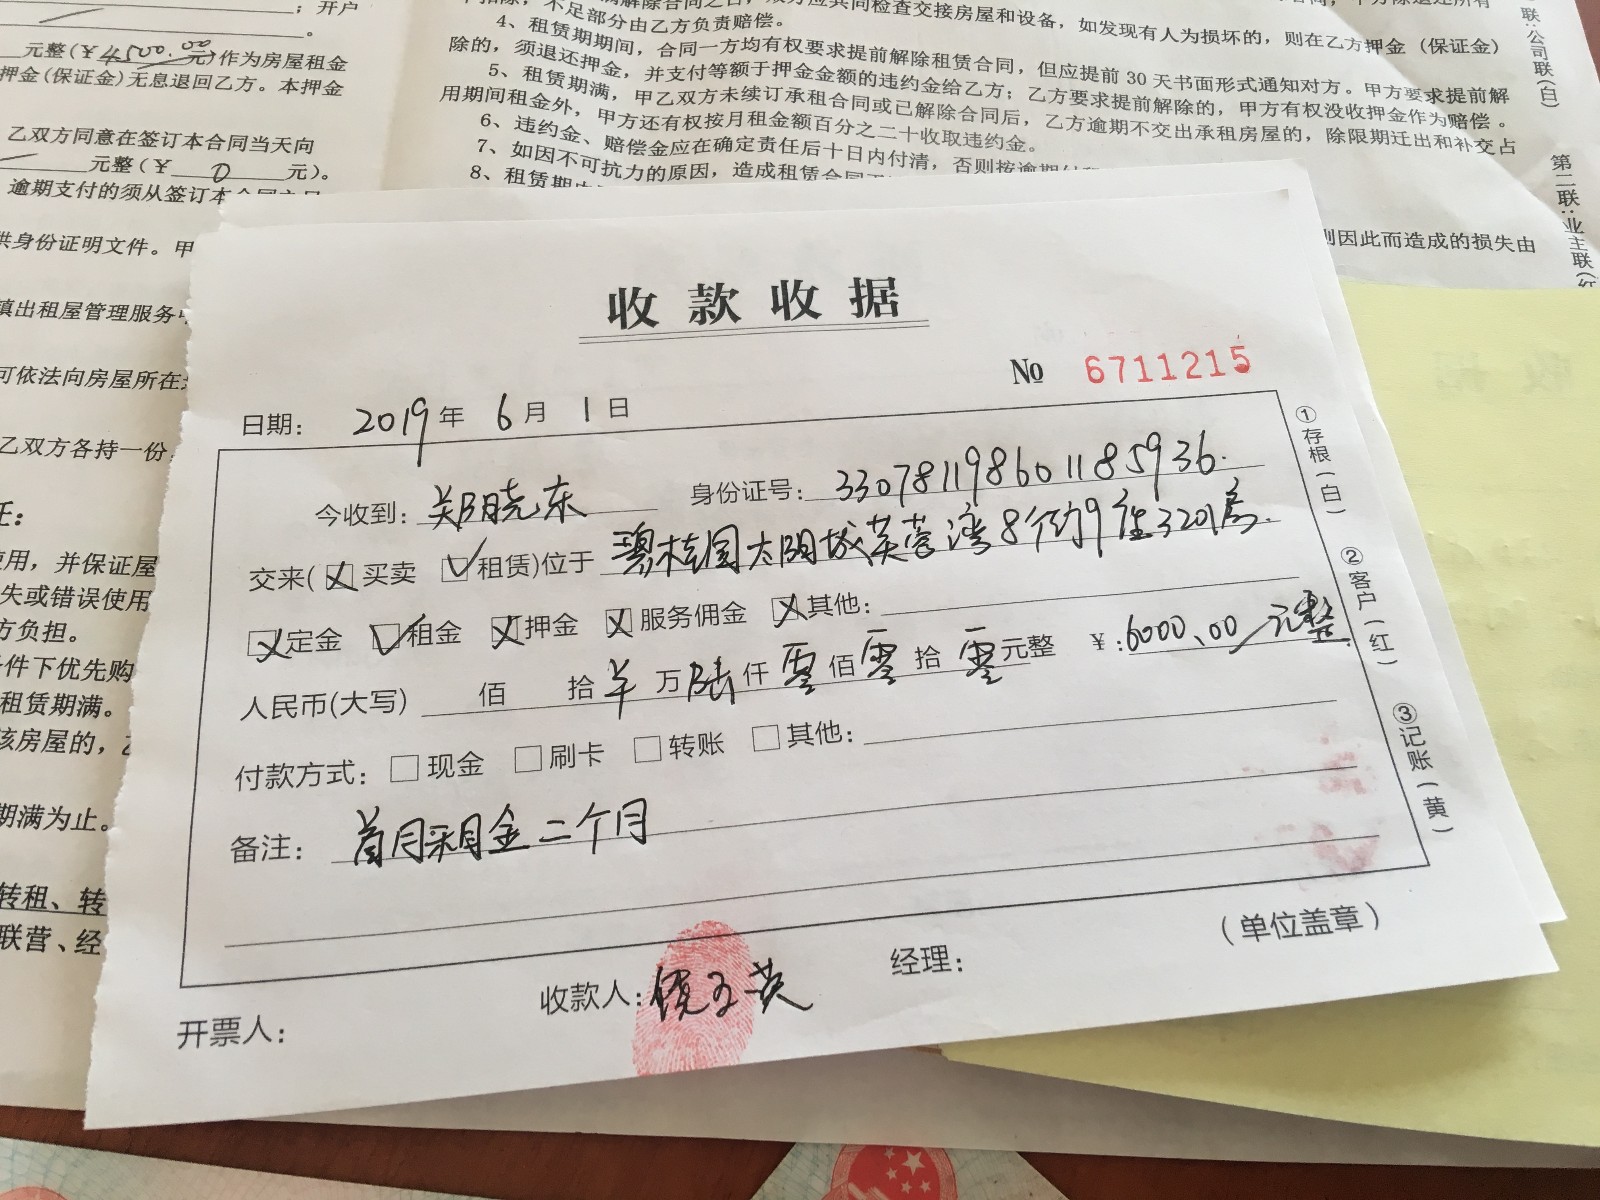 ；开户
。
元整(￥4500.00元)作为房屋租金
押金(保证金)无息退回乙方。本押金
乙双方同意在签订本合同当天向
元整(￥ 0 元)。
逾期支付的须从签订本合同之日
供身份证明文件。甲
镇出租屋管理服务中
可依法向房屋所在
乙双方各持一份，
任：
使用，并保证屋
失或错误使用
方负担。
条件下优先购
租赁期满。
该房屋的，乙
期满为止。
转租、转
联营、经
不足部分由乙方负责赔偿。
4、租赁期期间，合同一方均有权要求提前解除租赁合同，但应提前30天书面形式通知对方。甲方要求提前解
除的，须退还押金，并支付等额于押金金额的违约金给乙方；乙方要求提前解除的，甲方有权没收押金作为赔偿。
5、租赁期满，甲乙双方未续订承租合同或已解除合同后，乙方逾期不交出承租房屋的，除限期迁出和补交占
用期间租金外，甲方还有权按月租金额百分之二十收取违约金。
6、违约金、赔偿金应在确定责任后十日内付清，否则按逾期付
7、如因不可抗力的原因，造成租赁合同
8、租赁期
则因此而造成的损失由
联：公司联(白)
第二联：业主联(红
收款收据
№ 6711215
日期： 2019年 6月 1日
今收到：郑晓东 身份证号：330781198601185936.
交来(☒买卖 ☑租赁)位于 碧桂园太阳城芙蓉湾8街9座3201房.
☒定金 ☑租金 ☒押金 ☒服务佣金 ☒其他：
人民币(大写) 佰 拾 羊 万 陆 仟 零 佰 零 拾 零 元整 ￥：6000.00/元整
付款方式：□现金 □刷卡 □转账 □其他：
备注： 首月租金二个月
①存根(白)
②客户(红)
③记账(黄)
(单位盖章)
开票人： 收款人： 经理：